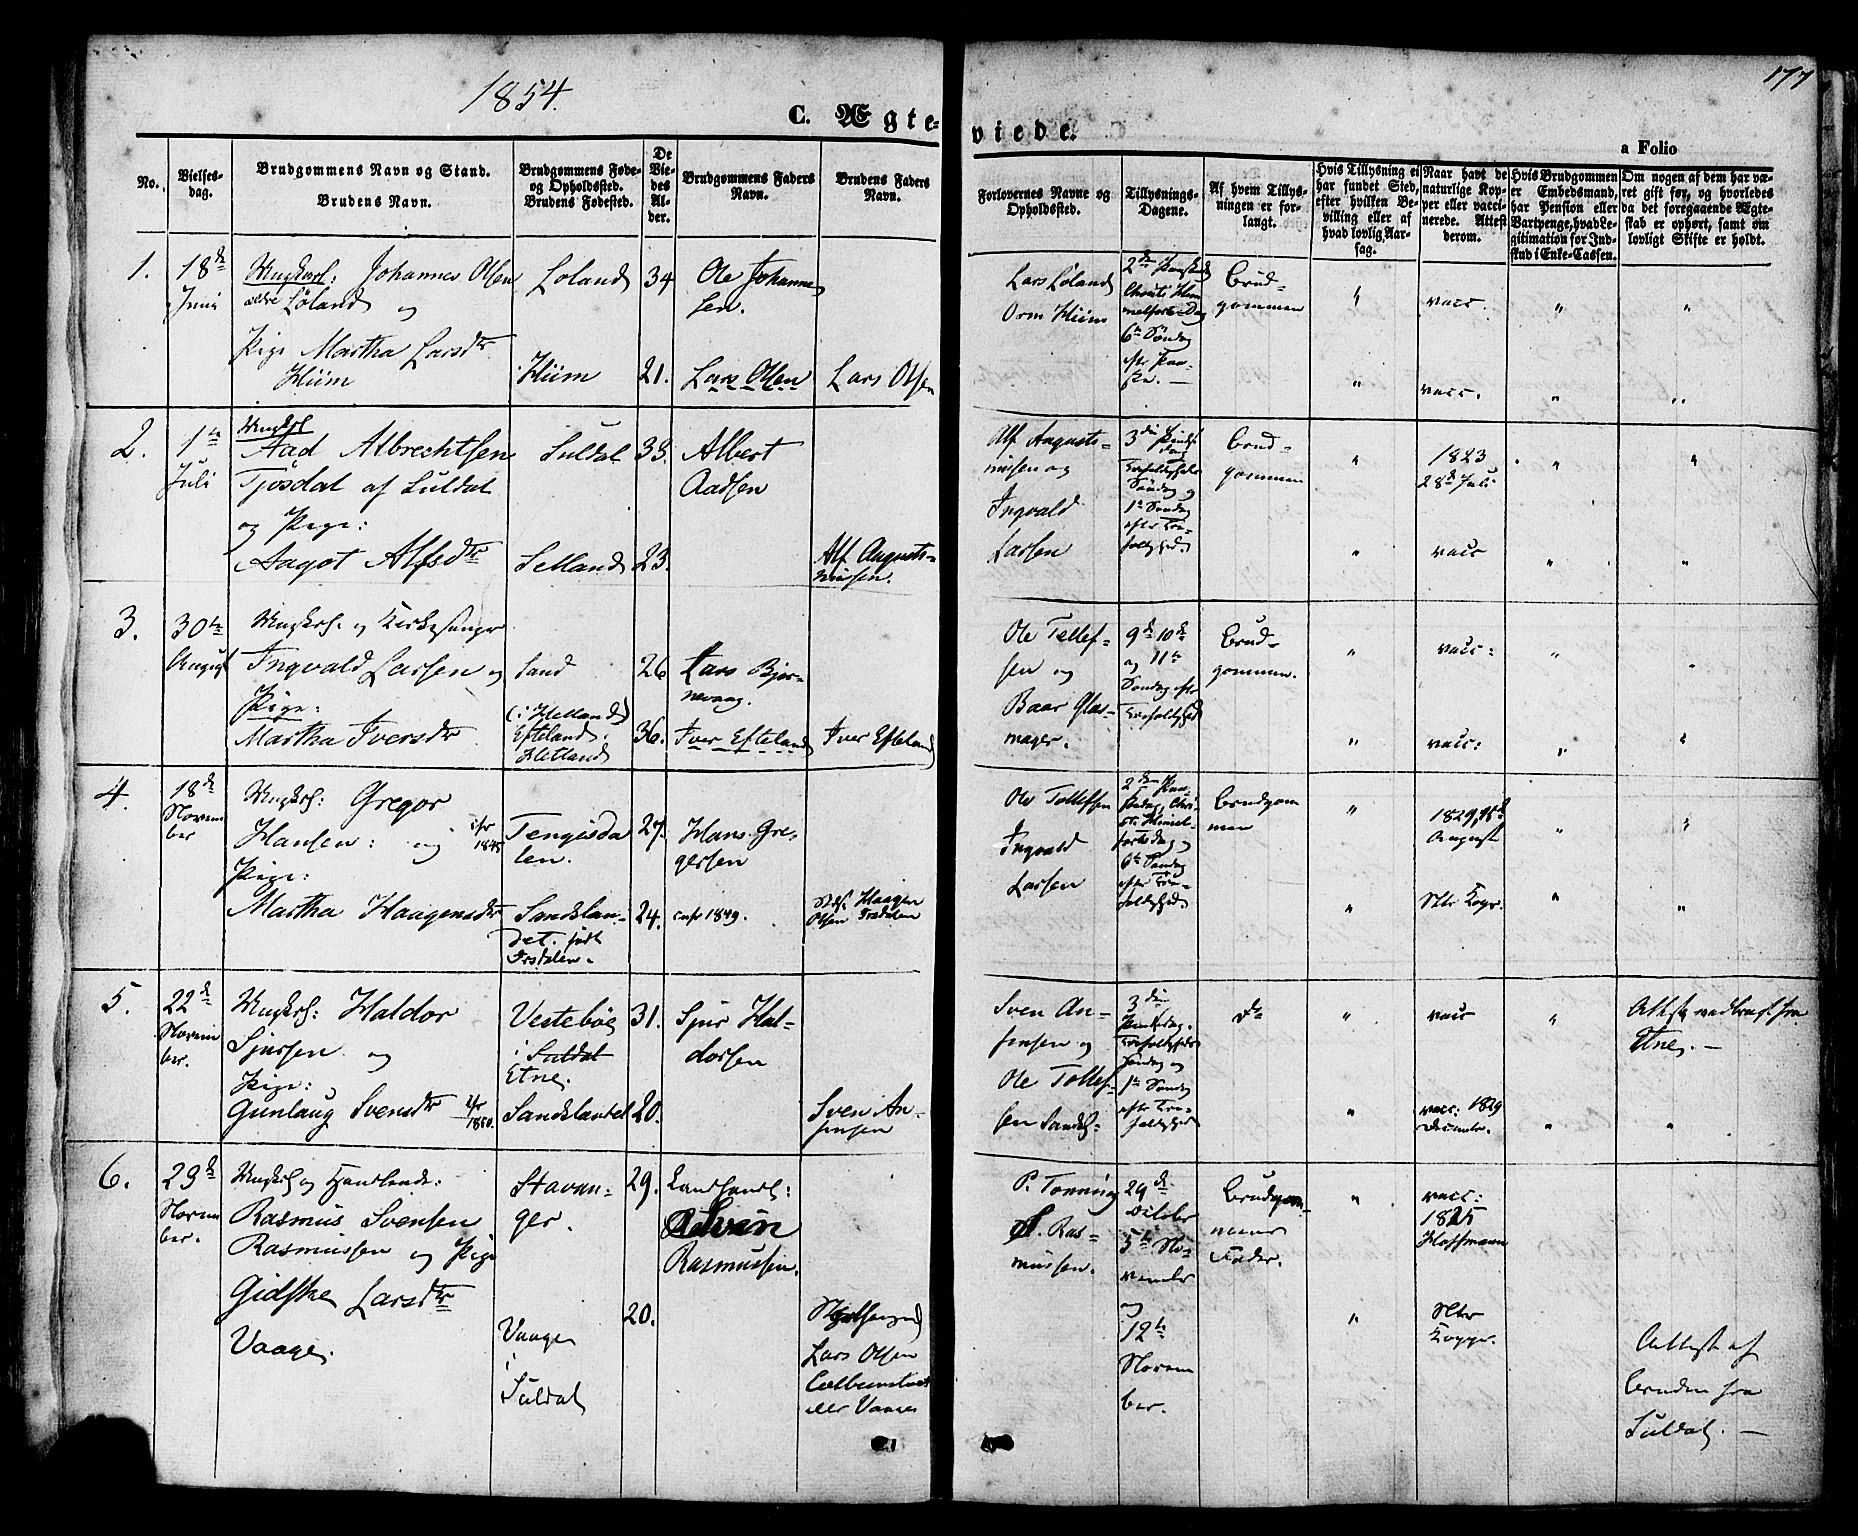 1854.
177
C. Ægte-
viede.
a Folio
No.
Vielses-
dag.
Brudgommens Navn og Stand.
Brudens Navn.
Brudgommens Føde-
og Opholdssted.
Brudens Fødested.
De
Vie-
des
Al-
der.
Brudgommens Faders
Navn.
Brudens Faders
Navn.
Forlovernes Navne og
Opholdssted.
Tillysnings-
Dagene.
Af hvem Tillys-
ningen er for-
langt.
Hvis Tillysning ei
har fundet Sted,
efter hvilken Be-
villing eller af
hvad lovlig Aar-
sag.
Naar havt de
naturlige Kop-
per eller vacci-
nerede. Attest
derom.
Hvis Brudgommen
er Embedsmand,
har Pension eller
Vartpenge, hvad Le-
gitimation for Ind-
skud i Enke-Cassen.
Om nogen af dem har væ-
ret gift før, og hvorledes
da det foregaaende Ægte-
skab er ophørt, samt om
lovligt Skifte er holdt.
1.
18de
Juni
Ungkarl: Johannes Olsen
Løland og
Pige Martha Larsdtr
Hiim
Loland
Hiim
34
21.
Ole Johanne-
sen.
Lars Olsen
Lars Olsen
Lars Løland
Orm Hiim
2den Paaskedag
Christi Him
melfartsDag
6te Søndag
eftr Paa-
ske. —
Brud-
gommen
"
"
vacc.
vacc.
"
"
"
"
2.
1te
Juli
Ungkrl
Aad Albrechtsen
Tjøsdal af Suldal
og Pige:
Aagot Alfsdtr
Suldal
Selland
33.
23.
Albert
Aadsen
Alf Augusti-
nusen.
Alf Augusti-
nusen og
Ingvald
Larsen
3die Pintse
dag
Trefoldigheds
Søndag og
1te Søndag
eftr Tre-
foldighed
Brud-
gommen
"
"
1823
28de Juli
vacc
"
"
"
"
3.
30te
August
Ungkrl. og Kirkesanger
Ingvald Larsen og
Pige:
Martha Iversdtr
Sand
(i Hetland)
Efteland.
Hetland
26
36.
Lars Bjør-
nevaag.
Iver Efteland
Iver Efteland
Ole Tollef-
sen og
Baar Glas-
mager.
9de 10de
og 11te
Søndag eftr
Trefoldighed
Brud-
gommen.
"
"
vacc:
vacc:
"
"
"
"
4.
18de
Novem
ber
Ungkrl: Gregor
Hansen: og
1845
Pige:
Martha Haagensdtr
Tengisda
len.
Sandslan-
det. født
Irsdalen.
27.
24.
Hans Gre-
gersen
conf 1849.
Haagen
Olsen Irsdalen
Ole Tollefsen
Ingvald
Larsen
2den Paa-
skedag, Chri-
sti Himmel-
fartsdag og
6te Søndag
efter Tre-
foldighed
Brudgom
men
"
"
1829,
August
Ntr Kopr.
"
"
"
"
5.
22de
Novem
ber.
Ungkrl: Haldor
Sjursen og
Pige:
Gunlaug Svensdtr
1850.
Vestebøe
i Suldal
Etne.
Sandslandet
31.
20.
Sjur Hal-
dorsen
Sven An-
fensen
Sven An-
fensen og
Ole Tollef-
sen Sandsl-
3die
Pintsedag.
Trefoldigheds
Søndag og
1te Søndag
efter Tre-
foldighed
Do
"
"
vacc
vacc: 1829
December.
"
"
Attest medbragt fra
Etne. —
"
6.
29de
Novem
ber.
Ungkrl og Handlende:
Rasmus Svensen
Rasmussen og Pige
Gidske Larsdtr
Vaage.
Stavan-
ger.
Vaage
i
Suldal
29.
20.
Landhandl:
Svein
Rasmussen.
Lars Olsen
Colbenstvedt
eller Vaage
P. Tonning
Ras-
mussen.
29de
Octobr
5te No-
vembr
og
12te
Novem
ber.
Brudgom-
mens
Fader.
"
"
vacc:
1825
Hoffmann
Ntr
Kopper.
Attest af
Bruden fra
Suldal. —